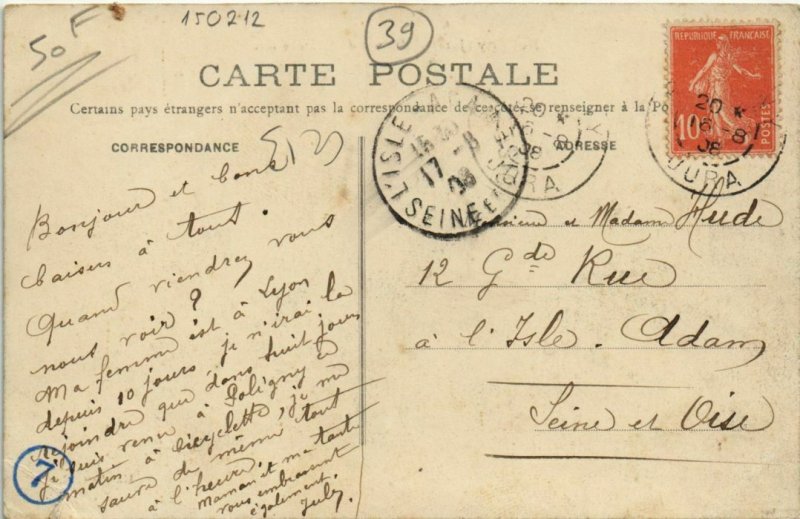 50F
150212
39
CARTE POSTALE
Certains pays étrangers n'acceptant pas la correspondance de ce côté, se renseigner à la Po
CORRESPONDANCE
ADRESSE
RÉPUBLIQUE FRANÇAISE
10
POSTES
20 *
16-8
08
JURA
20 *
16-8
08
JURA
L'ISLE ADAM
17-8
08
SEINE ET
Bonjour et bons
baisers à tout.
Quand viendrez vous
nous voir ?
Ma femme est à Lyon
depuis 10 jours je n'irai la
rejoindre que dans huit jours
je suis venu à Poligny ce
matin à bicyclette, je me
sauve de même tout
à l'heure.
Maman et ma tante
vous embrassent
également.
July
Monsieur et Madame Hude
12 Gde Rue
à l'Isle-Adam
Seine et Oise
7